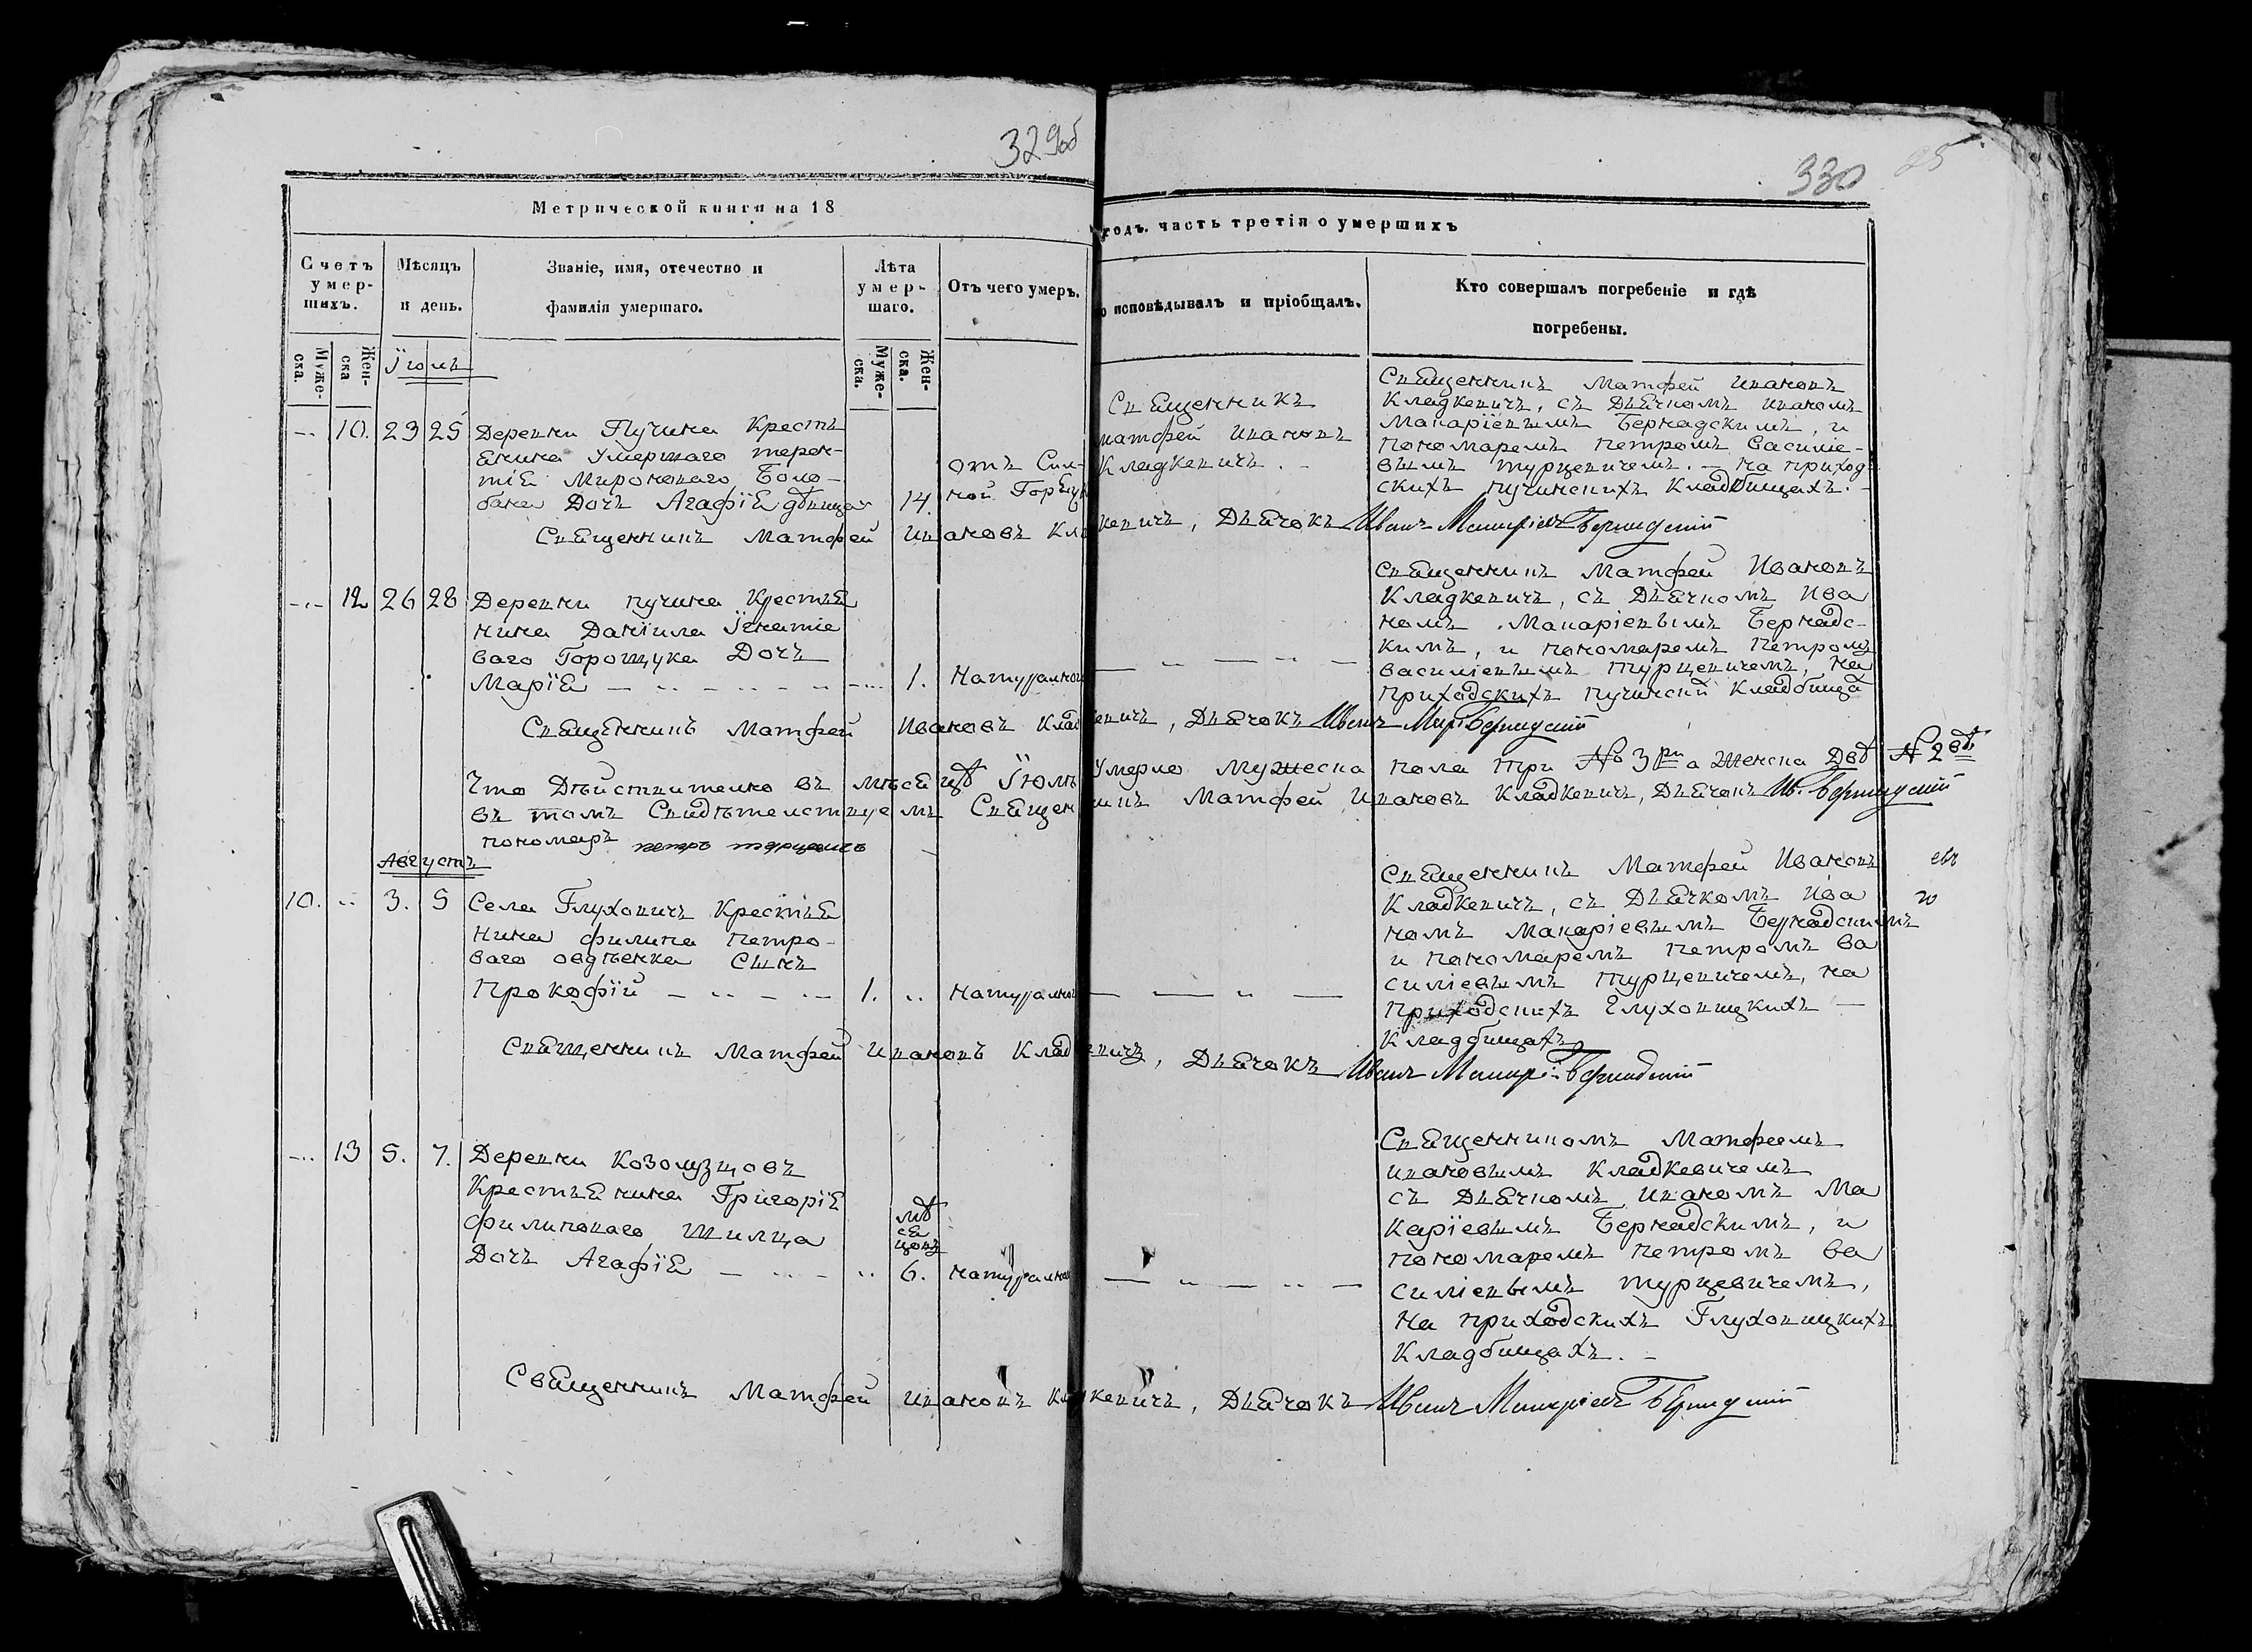 329об
330 25
Метрической книги на 18
годъ. часть третія о умершихъ
Счетъ умер-
шихъ.
Мѣсяцъ
и день.
Званіе, имя, отечество и
фамилія умершаго.
Лѣта
умер-
шаго.
Отъ чего умеръ.
исповѣдывалъ и пріобщалъ.
Кто совершалъ погребеніе и гдѣ
погребены.
Муже-
ска.
Жен-
ска
Муже-
ска.
Жен-
ска.
Їюль
-- 10. 23 25
Деревни Пучина Кресть
янина Умершаго терен-
тія Миронового Боло-
бана Дочь Агафїя дѣвица
14.
отъ Сил-
ной Горяч
Священникъ
матфей Ивановъ
Кладкевичъ. -
Священникъ Матфей Ивановъ
Кладкевичъ, съ Дьячкомъ иваномъ
Макаріевымъ Бернадскимъ, и
пономаремъ петромъ Василіе-
вымъ турцевичемъ. - на приход-
скихъ пучинскихъ Кладбищахъ. -
Священникъ Матфей Ивановъ Кладкевичъ, Дьячокъ Иванъ Макаріевъ Бернадскій
--- 12 26 28
Деревни пучина Крестья
нина Данїила Їгнатіе
ваго Горощука Дочь
Марїя
1.
Натуралной
Священникъ Матфей Ивановъ
Кладкевичъ, съ Дьячкомъ Ива
номъ Макаріевымъ Бернадс-
кимъ, и пономаремъ Петромъ
василіевымъ Турцевичемъ, на
приходскихъ пучински Кладбища
Священникъ Матфей Ивановъ Кладкевичъ, Дьячокъ Иванъ Мар: Бернадскій
Что Дѣйствително въ мѣсяцѣ Їюлѣ Умерло Мужеска пола три № 3ри а Женска Двѣ № 2вѣ
въ томъ Свидѣтелствуемъ Священникъ Матфей Ивановъ Кладкевичъ, Дьячокъ Ив. Бернадскій
пономарь петръ турцевичъ
Августъ
10. -- 3. 5
Села Глуховичъ Крестья
нина филипа петро-
ваго овдѣенка Сынъ
Прокофїй
1. ..
Натуралной
Священникъ Матфей Ивановъ
Кладкевичъ, съ Дьячкомъ Ива
номъ Макаріевымъ Бернадскимъ
и пономаремъ петромъ ва
силіевымъ турцевичемъ, на
приходскихъ глуховицкихъ -
Кладбищахъ
Священникъ Матфей Ивановъ Кладкевичъ, Дьячокъ Иванъ Макарі: Бернадскій
--- 13 5. 7.
Деревни Козолузцовъ
Крестьянина Григорїя
филиповаго Шилца
Дочь Агафїя
мѣ
ся
цовъ
6.
натуралной
Священникомъ Матфеемъ
ивановымъ Кладкевичемъ
съ Дьячкомъ иваномъ Ма
карїевымъ Бернадскимъ, и
пономаремъ петромъ ва
силіевымъ турцевичемъ,
на приходскихъ Глуховицкихъ
Кладбищахъ. -
Священникъ Матфей Ивановъ Кладкевичъ, Дьячокъ Иванъ Макаріевъ Бернадскій